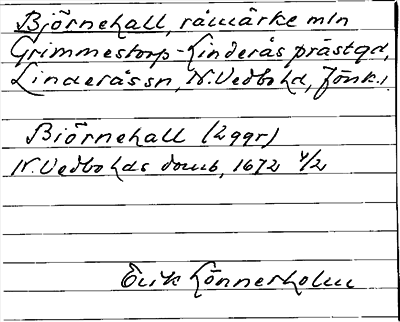 Björnehall, råmärke mln
Grimmestorp-Linderås prästgd,
Linderås sn, N. Vedbo hd, Jönk.l
Biörnehall (2 ggr)
N. Vedbo hds domb, 1672 4/2
Erik Lönnerholm